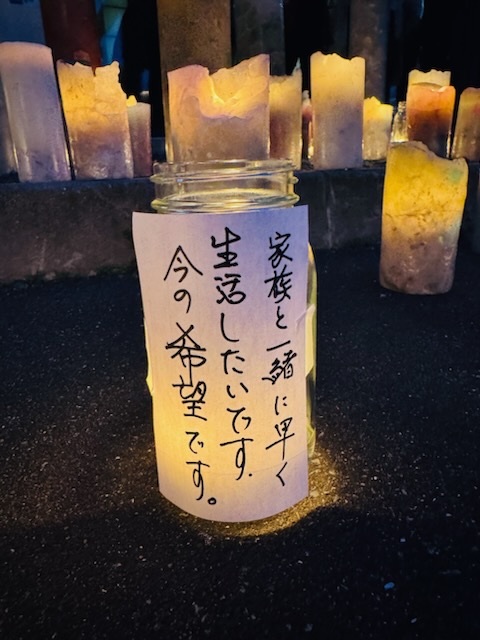 家族と一緒に早く
生活したいです.
今の希望です。